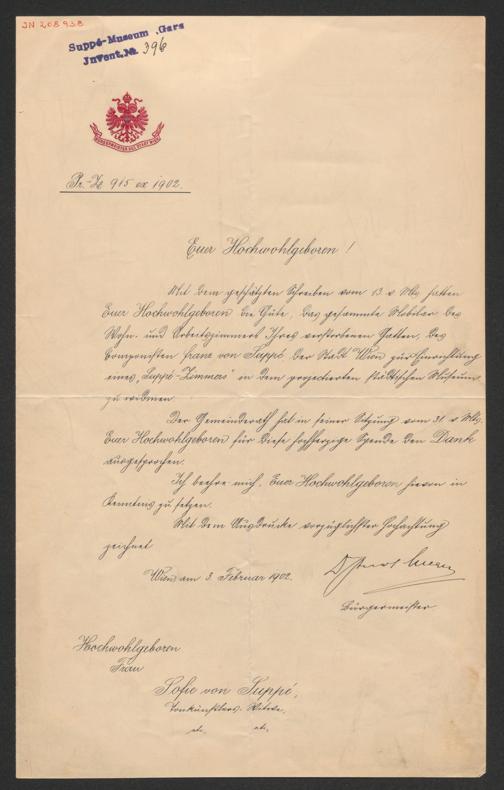 JN 208938
Suppé-Museum, Gars
Invent. № 396
BÜRGERMEISTER DER STADT WIEN
Pr.-Z. 915 ex 1902.
Euer Hochwohlgeboren!
Mit dem geschätzten Schreiben vom 13. v. Mts. hatten
Euer Hochwohlgeboren die Güte, das gesammte Mobilar des
Wohn- und Arbeitszimmers Ihres verstorbenen Gatten, des
Componisten Franz von Suppé der Stadt Wien zur Einrichtung
eines „Suppé-Zimmers" in dem projectierten städtischen Museum
zu widmen.
Der Gemeinderath hat in seiner Sitzung vom 31. v. Mts.
Euer Hochwohlgeboren für diese hochherzige Spende den Dank
ausgesprochen.
Ich beehre mich, Euer Hochwohlgeboren hievon in
Kenntnis zu setzen.
Mit dem Ausdrucke vorzüglichster Hochachtung
zeichnet
Wien am 3. Februar 1902.
Bürgermeister
Hochwohlgeboren
Frau
Sofie von Suppé,
Tonkünstlers-Witwe,
etc. etc.